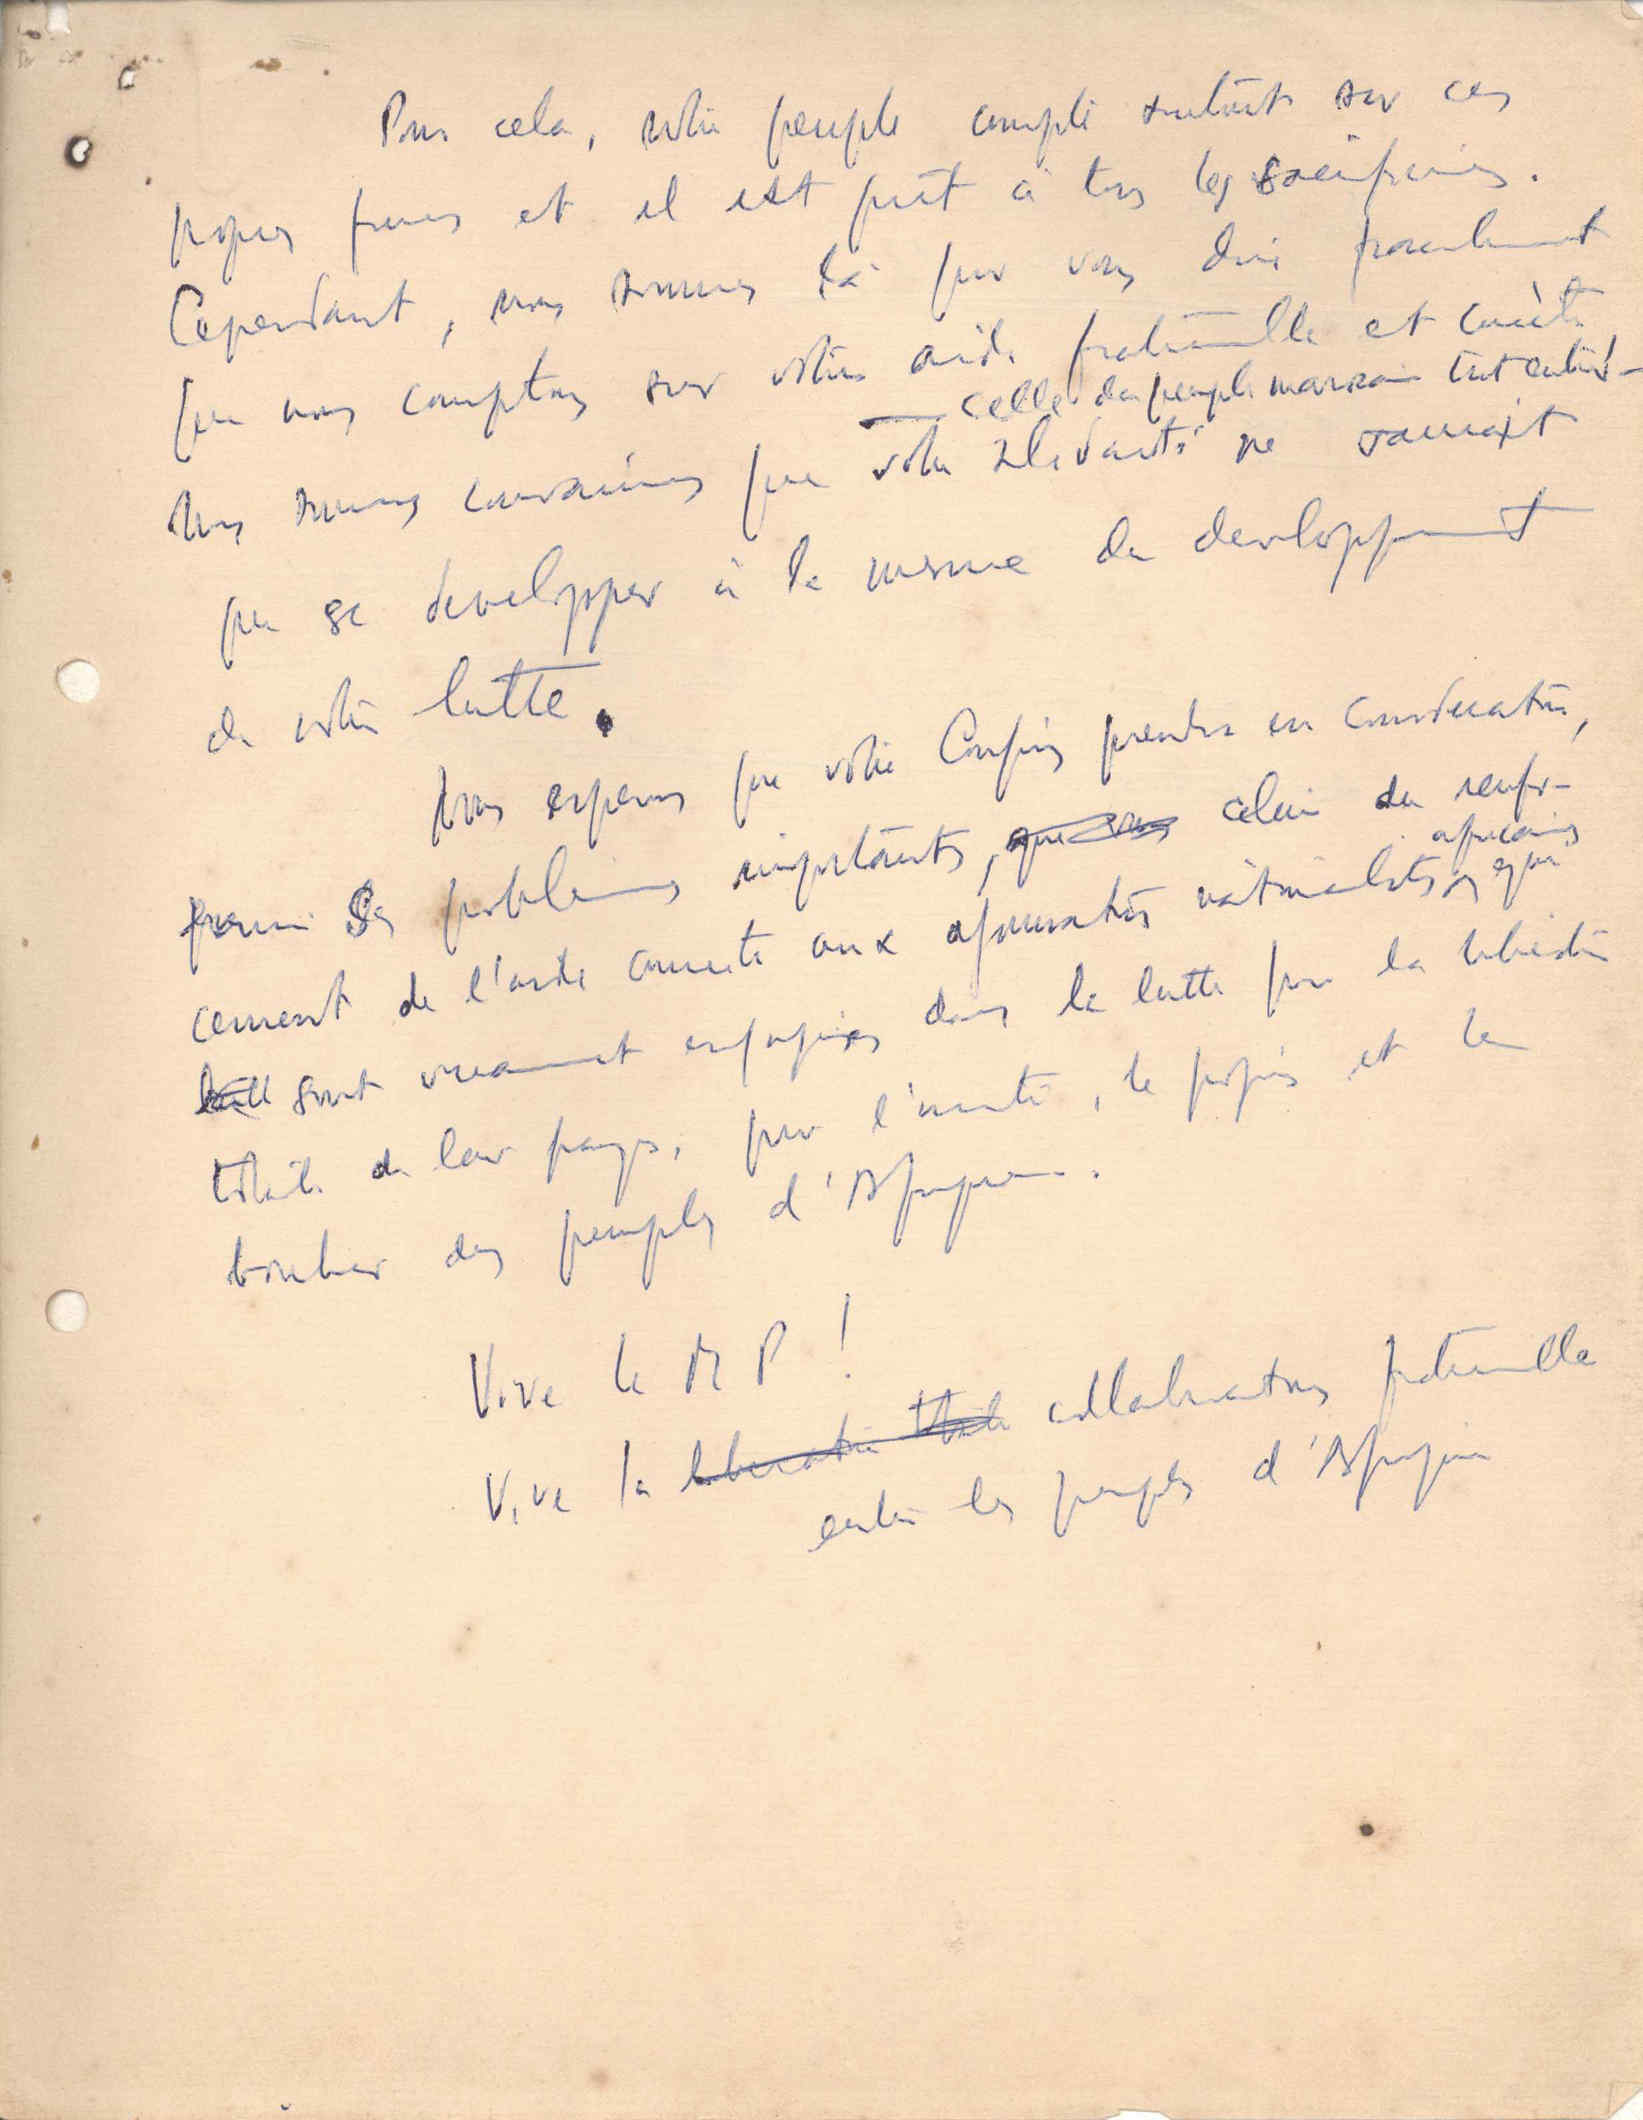 Pour cela, notre peuple compte surtout sur ces
propres forces et il est prêt à tous les sacrifices.
Cependant, nous sommes là pour vous dire franchement
que nous comptons sur votre aide fraternelle et concrète
— celle du peuple marocain tout entier! —
Nous sommes convaincus que votre solidarité ne saurait
que se developper à la mesure du developpement
de notre lutte.
Nous esperons que votre Congrès prendra en consideration,
parmi les problèmes importants, que vous celui du renfor-
africains
cement de l'aide concrète aux organisations nationalistes qui
sont vraiment engagées dans la lutte pour la libération
totale de leur pays, pour l'unité, le progrès et le
bonheur des peuples d'Afrique.
Vive le MP!
Vive la liberation totale collaboration fraternelle
entre les peuples d'Afrique